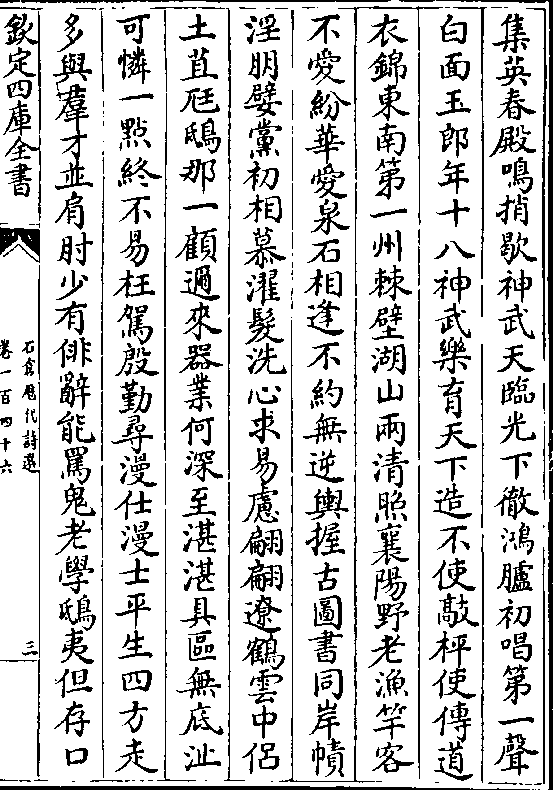 集英春殿鳴捎歇神武天臨光下徹鴻臚初唱第一聲
白面玉郎年十八神武樂育天下造不使敲枰使傳道
衣錦東南第一州棘壁湖山兩清照襄陽野老漁竿客
不愛紛華愛泉石相逢不約無逆輿握古圖書同岸幘
淫朋嬖黨初相慕濯髮洗心求易慮翩翩遼鶴雲中侶
土苴尫鴟那一顧邇來器業何深至湛湛具區無底沚
可憐一點終不易枉駕殷勤尋漫仕漫士平生四方走
多與羣才並肩肘少有俳辭能罵鬼老學鴟夷但存口
欽定四庫全書
石倉歷代詩選
卷一百四十六
三